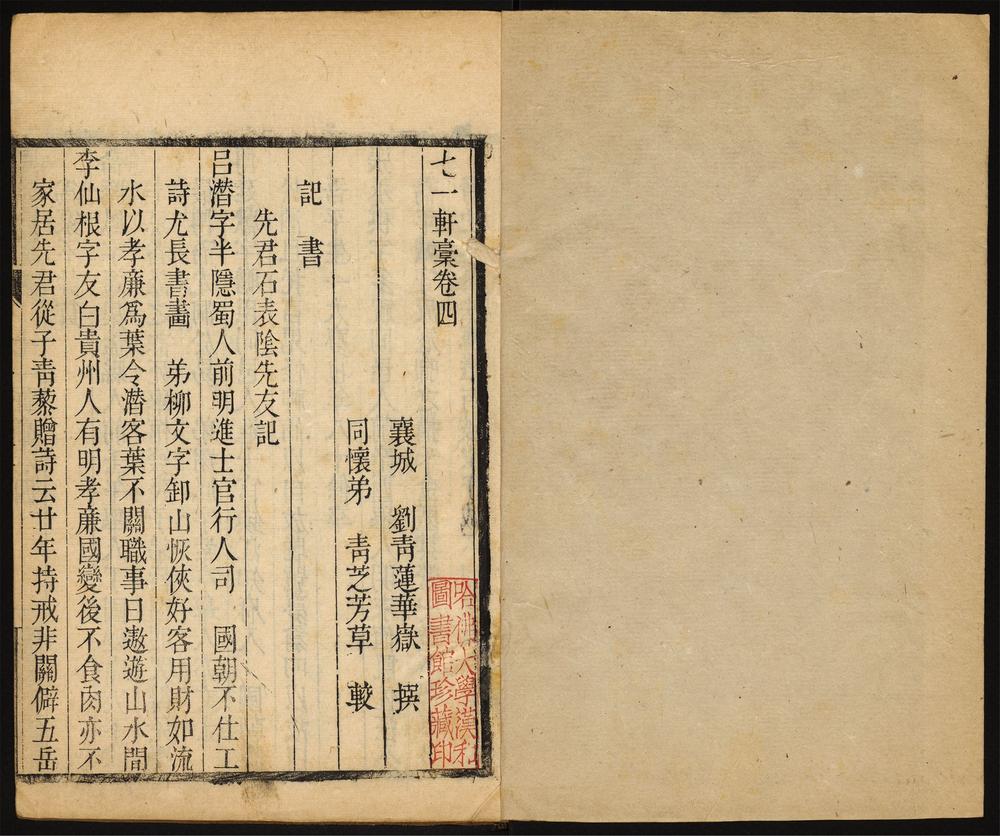 七一軒稾卷四
襄城　劉青蓮華嶽　撰
同懷弟　青芝芳草　較
記　書
先君石表陰先友記
吕潛字半隱蜀人前明進士官行人司　國朝不仕工
詩尤長書畵　弟柳文字卸山恢俠好客用財如流
水以孝廉爲葉令潛客葉不關職事日遨遊山水間
李仙根字友白貴州人有明孝廉國變後不食肉亦不
家居先君從子青藜贈詩云廿年持戒非關僻五岳
哈佛大學漢和
圖書館珍藏印